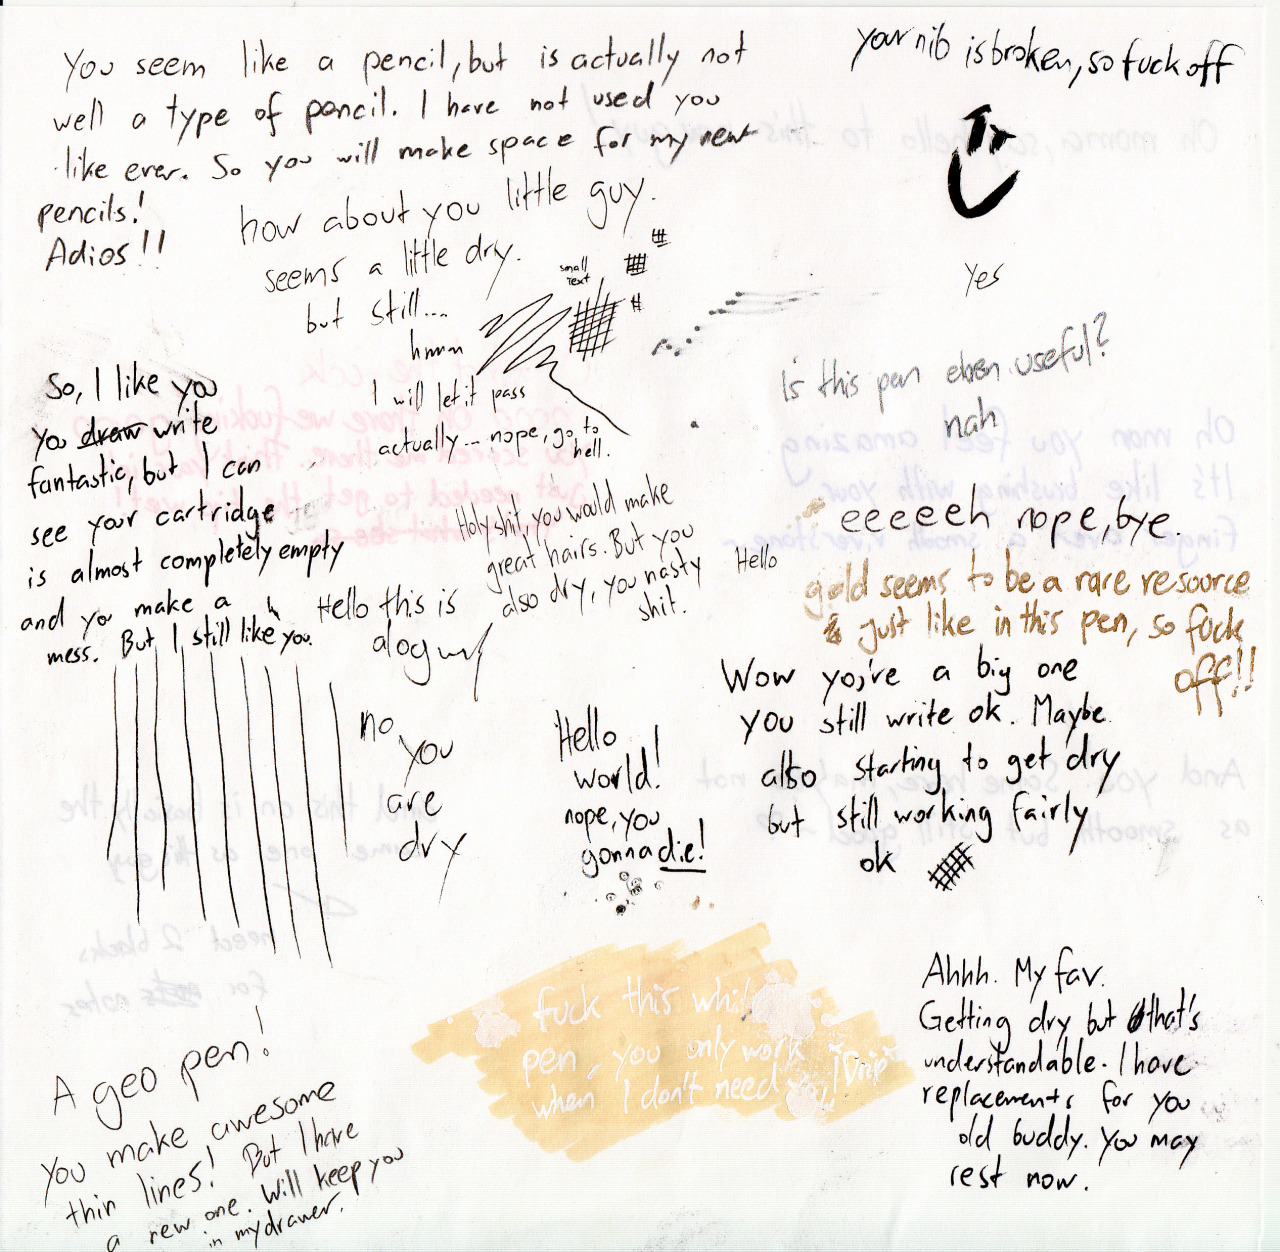 You seem like a pencil, but is actually not
well a type of pencil. I have not used you
like ever. So you will make space for my new
pencils!
Adios!!
your nib is broken, so fuck off
how about you little guy.
seems a little dry.
but still...
hmm
small
text
I will let it pass
actually... nope, go to
hell.
yes
Is this pen even useful?
nah
So, I like you
You draw write
fantastic, but I can
see your cartridge
is almost completely empty
and you make a
mess. But I still like you.
Holy shit, you would make
great hairs. But you
also dry, you nasty
shit.
Hello
eeeeeh nope, bye.
gold seems to be a rare resource
just like in this pen, so fuck
off!!
Hello this is
a
no,
you
are
dry
Hello
world!
nope, you
gonna die!
Wow you're a big one
you still write ok. Maybe
also starting to get dry
but still working fairly
ok
fuck this
pen, you only work
when I don't need you!
"Drip"
Ahhh. My fav.
Getting dry but that's
understandable. I have
replacements for you
old buddy. You may
rest now.
A geo pen!
You make awesome
thin lines! But I have
a new one. Will keep you
in my drawer.